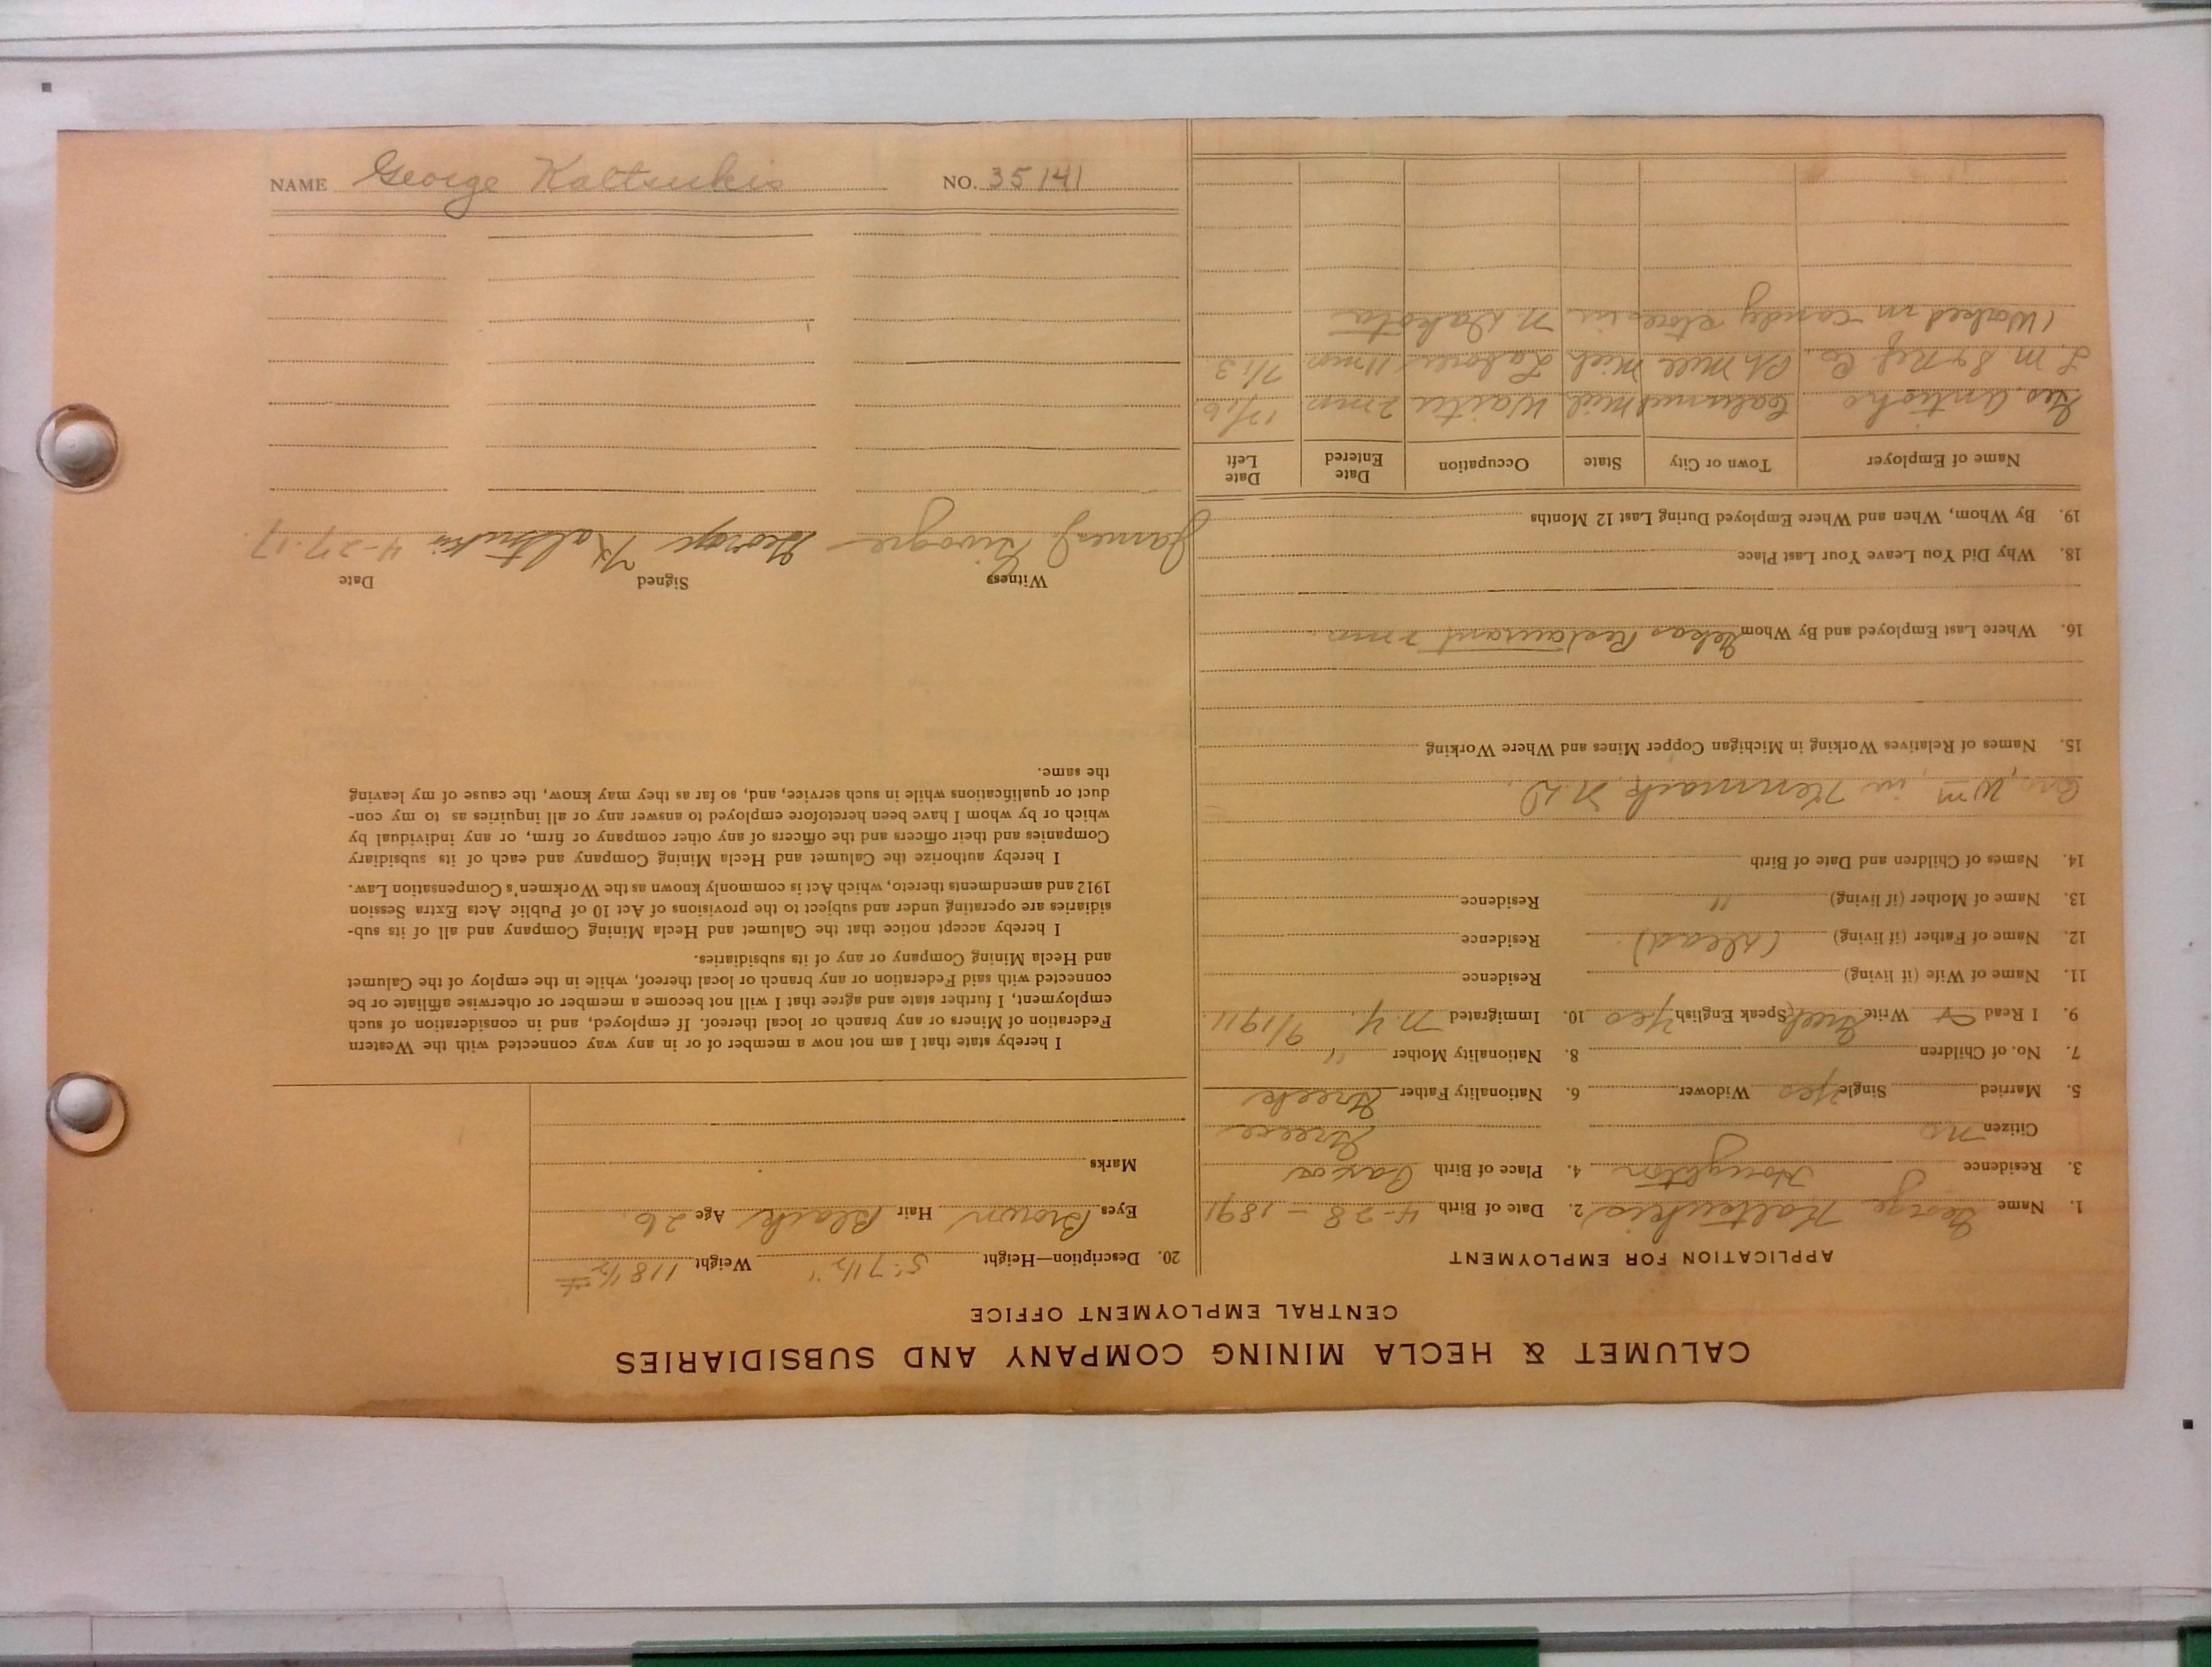 NAME George Kaltsukis NO. 35141
CALUMET & HECLA MINING COMPANY AND SUBSIDIARIES
CENTRAL EMPLOYMENT OFFICE
APPLICATION FOR EMPLOYMENT
1. Name George Kaltsukis 2. Date of Birth 4-28-1891
3. Residence Houghton 4. Place of Birth
Citizen no Greece
5. Married Single yes Widower 6. Nationality Father Greek
7. No. of Children 8. Nationality Mother "
9. I Read & Write Greek Speak English yes 10. Immigrated N.Y. 9/1911
11. Name of Wife (if living) Residence
12. Name of Father (if living) (dead) Residence
13. Name of Mother (if living) " Residence
14. Names of Children and Date of Birth
Wm, in N.D.
15. Names of Relatives Working in Michigan Copper Mines and Where Working
16. Where Last Employed and By Whom Restaurant 2 mos.
18. Why Did You Leave Your Last Place
19. By Whom, When and Where Employed During Last 12 Months
Name of Employer Town or City State Occupation Date Entered Date Left
Geo. Calumet Mich Waiter 2 mos 12/16
Mill Mich Laborer 11 mos 7/13
(Worked in candy stores in N. Dakota
20. Description—Height 5' 7½" Weight 118½#
Eyes Brown Hair Black Age 26
Marks
I hereby state that I am not now a member of or in any way connected with the Western
Federation of Miners or any branch or local thereof. If employed, and in consideration of such
employment, I further state and agree that I will not become a member or otherwise affiliate or be
connected with said Federation or any branch or local thereof, while in the employ of the Calumet
and Hecla Mining Company or any of its subsidiaries.
I hereby accept notice that the Calumet and Hecla Mining Company and all of its sub-
sidiaries are operating under and subject to the provisions of Act 10 of Public Acts Extra Session
1912 and amendments thereto, which Act is commonly known as the Workmen's Compensation Law.
I hereby authorize the Calumet and Hecla Mining Company and each of its subsidiary
Companies and their officers and the officers of any other company or firm, or any individual by
which or by whom I have been heretofore employed to answer any or all inquiries as to my con-
duct or qualifications while in such service, and, so far as they may know, the cause of my leaving
the same.
Witness Signed Date
James George Kaltsukis 4-27-17.